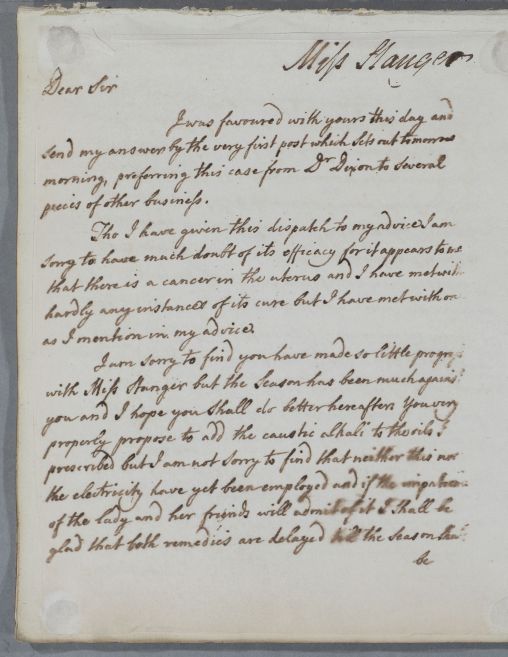 Miſs Stanger
Dear Sir
I was favoured with yours this day and
send my answer by the very first post which sets out tomorrow
morning, preferring this case from Dr Dixon to several
pieces of other businiſs.
Tho I have given this dispatch to my advice I am
sorry to have much doubt of its efficacy for it appears to me
that there is a cancer in the uterus and I have met with
hardly any instances of its cure but I have met with one
as I mention in my advice.
I am sorry to find you have made so little progreſs
with Miſs Stanger but the Season has been much against
you and I hope you shall do better hereafter. You very
properly propose to add the caustic alkali to the oils I
prescribed but I am not sorry to find that neither this nor
the electricity have yet been employed and if the
of the lady and her friends will admit of it I shall be
glad that both remedies are delayed till the season shall
be